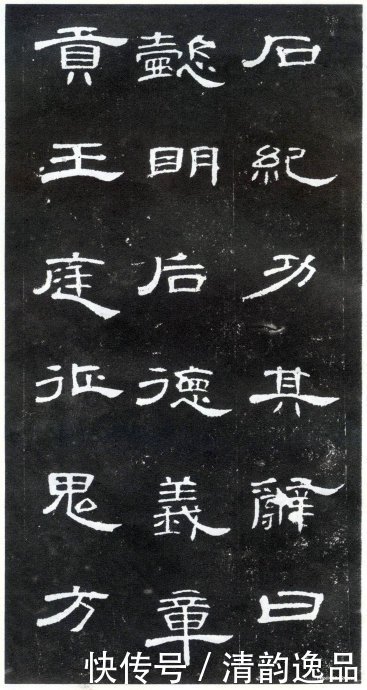 石紀功其辭曰
懿明后德義章
貢王庭征鬼方
快传号 / 清韵逸品